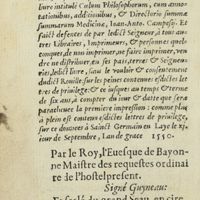 liure intitulé Culum Philosophorum, cum anno-
tationibus, addicionibus, & Directorio summæ
summarum Medicinæ, Ioan. Anto. Campesij. Et
faict defences de par ledict Seigneur, à tous au-
tres Libraires, Imprimeurs, & personnes quelz-
conques, de non imprimer, ne faire imprimer, ven-
dre ne distribuer, en ses pais, terres & Seigneu-
ries, ledict liure, sans le vouloir & consentement
dudict Rouille, sur les peines contenues esdictes let-
tres de priuilege: & ce iusques au temps & terme
de six ans, à compter du iour & datte que sera
paracheuee la premiere impression: comme plus
à plein est contenu esdictes lettres de priuilege,
sur ce donnees à Sainct Germain en Laye le xj.
iour de Septembre, l'an de grace 1550.
Par le Roy, l'Euesque de Bayon-
ne Maistre des requestes ordinai
re de l'hostel present.
Signé Guyneau: